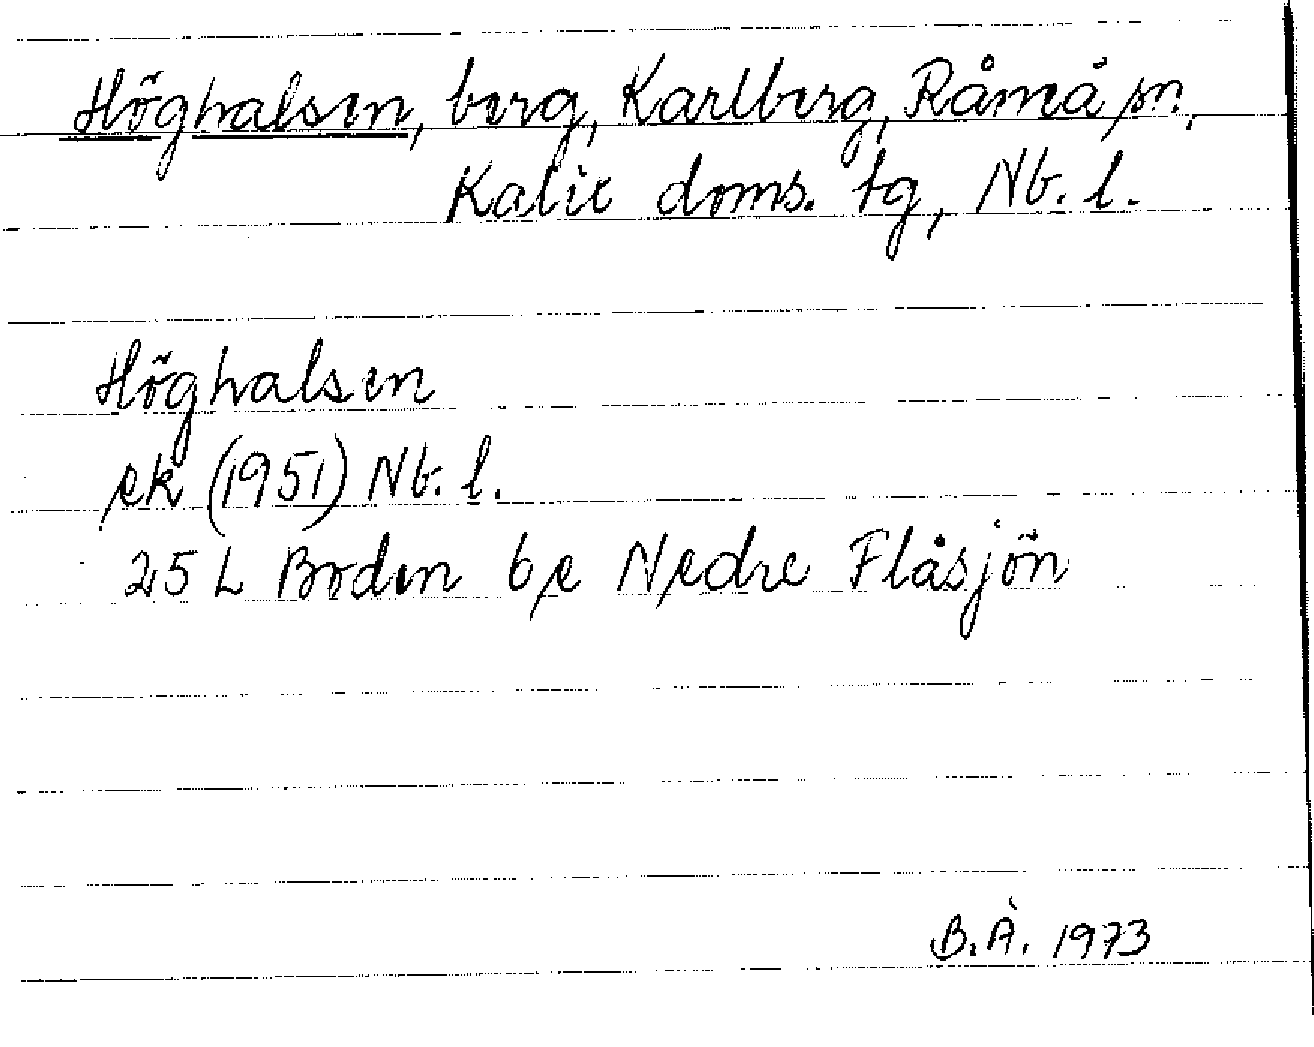 Höghalsen, berg, Karlberg, Råneå sn,
Kalix doms. tg, Nb. l.
Höghalsen
ek (1951) Nb. l.
25 L Boden be Nedre Flåsjön
B.Å. 1973